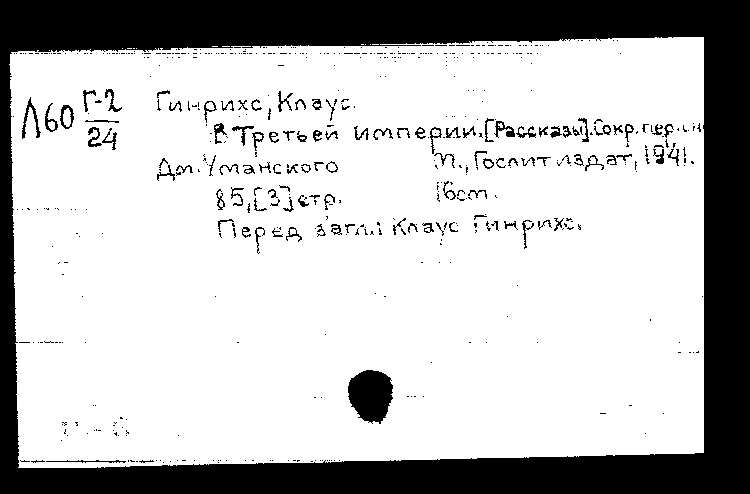 Л60 Г-2
24
Гинрихс, Клаус.
В Третьей империи. [Рассказы]. Сокр. пер.
Дм. Уманского М., Гослитиздат, 1941.
85, [3] стр. 16см.
Перед загл.: Клаус Гинрихс.